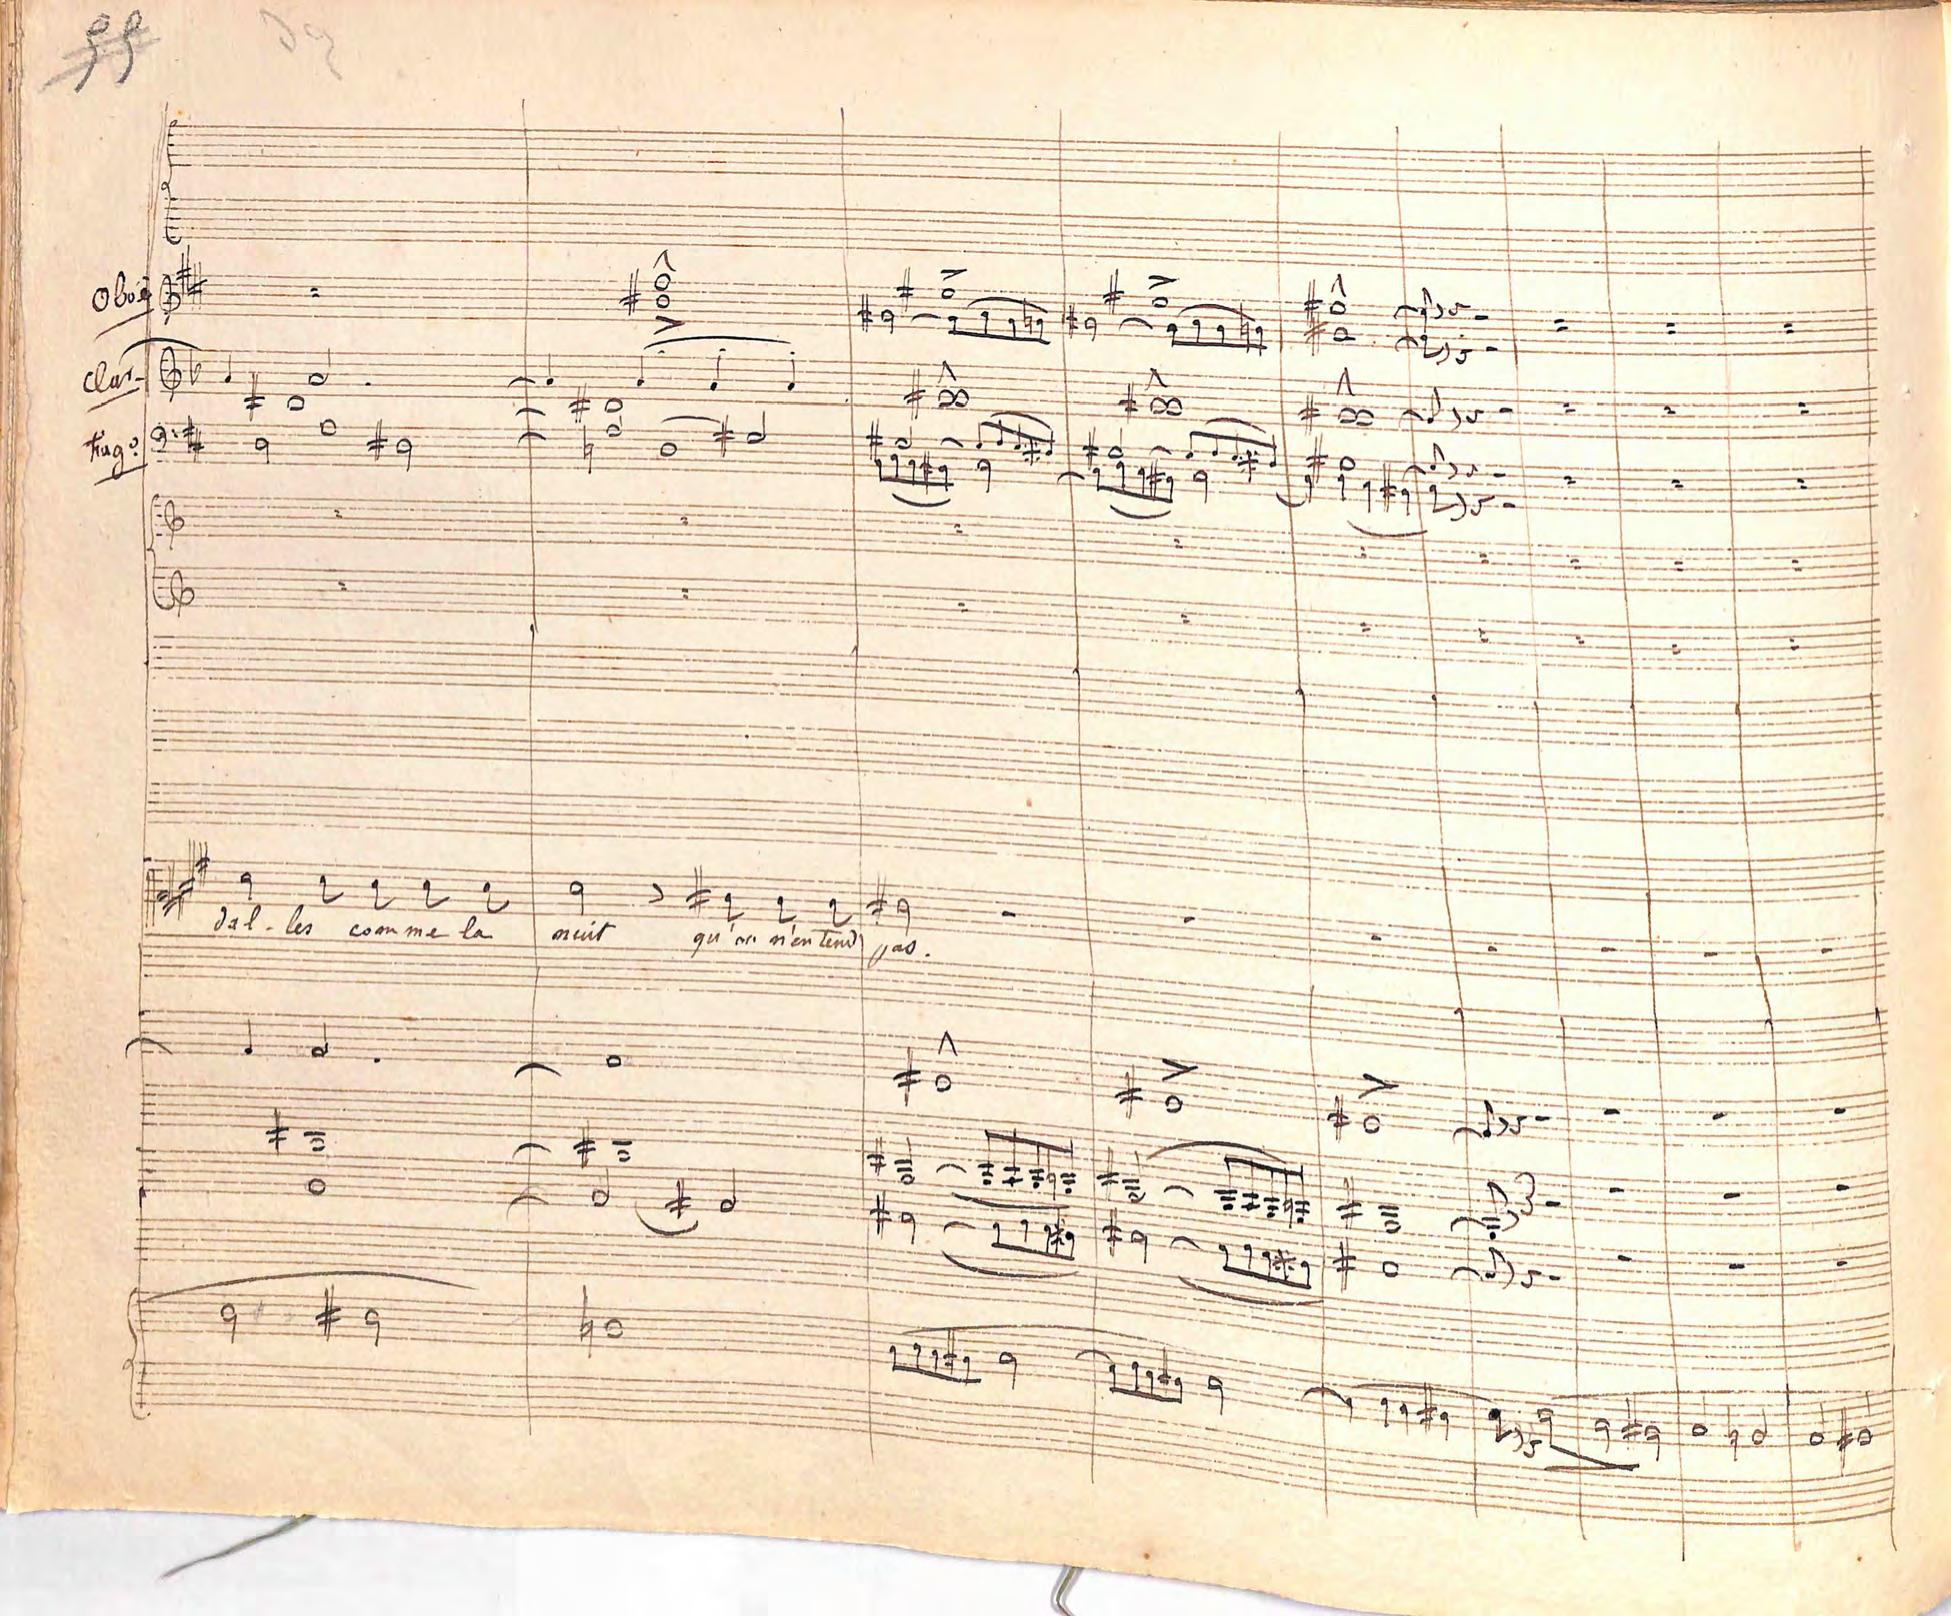 Oboi
Clar.
Fag.
dal-les comme la nuit qu'on n'entend pas.